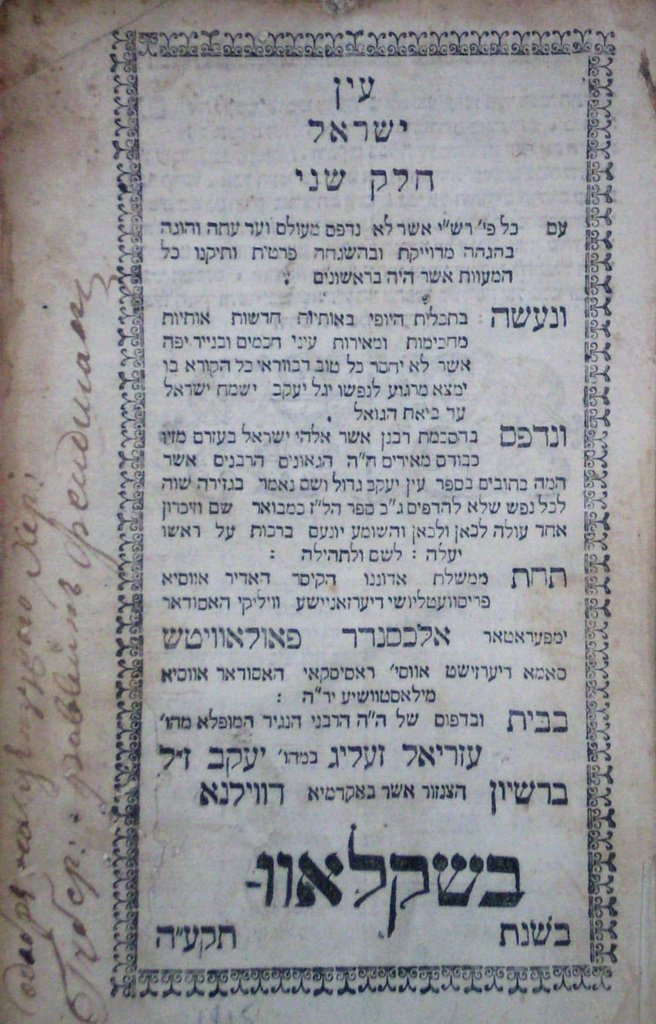 עין
ישראל
חלק שני
עם כל פי' רש"י אשר לא נדפס מעולם ועד עתה והוגה
בהגהה מדוייקת ובהשגחה פרטית ותיקנו כל
המעוות אשר היה בראשונים :
ונעשה בתכלית היופי באותיות חדשות אותיות
מחכימות ומאירות עיני חכמים ובנייר יפה
אשר לא יחסר כל טוב דבוודאי כל הקורא בו
ימצא מרגוע לנפשו יגל יעקב ישמח ישראל
עד ביאת הגואל .
ונדפס בהסכמת רבנן אשר אלהי ישראל בעזרם מזיו
כבודם מאירים ה"ה הגאונים הרבנים אשר
המה כתובים בספר עין יעקב גדול ושם נאמר בגזירה שוה
לכל נפש שלא להדפיס ג"כ ספר הל"ז כמבואר שם וזיכרון
אחד עולה לכאן ולכאן והשומע יונעם ברכות על ראשו
יעלה : לשם ולתהילה :
תחת ממשלת אדוננו הקיסר האדיר אווסיא
פריסוועטליושי דיערזאניישע וויליקי האסודאר
ימפעראטאר אלכסנדר פאולאוויטש
סאמא דיערזישט אווסי' ראסיסקאי האסודאר אווסיא
מילאסטוושיע יר"ה :
בבית ובדפוס של ה"ה הרבני הנגיד המופלא מהו'
עזריאל זעליג במהו' יעקב ז"ל
ברשיון הצנזור אשר באקדמיא דווילנא
בשקלאוו-
בשנת תקע"ה